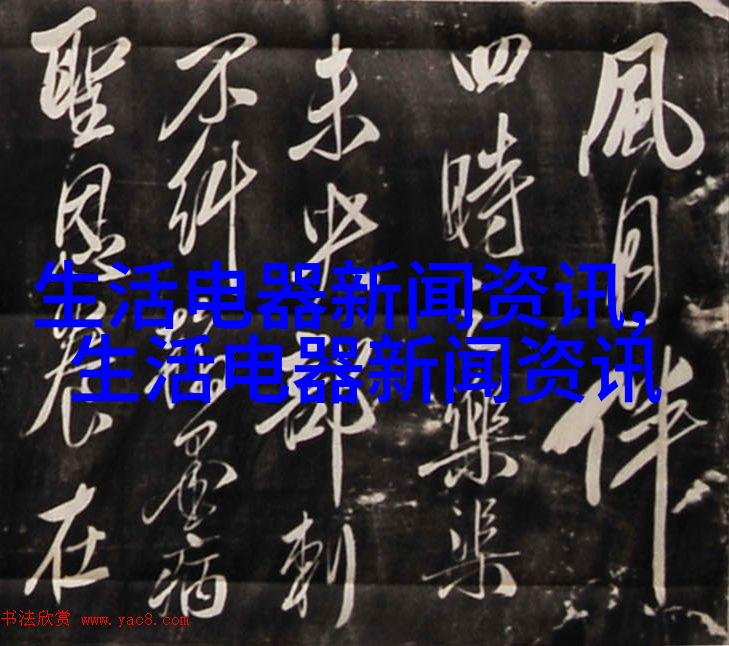 風月伴
四時樂渠
未央部刺
不糾病
聖恩在
生活电器新闻资讯,
生活电器新闻资讯
书法欣赏 www.yac8.com